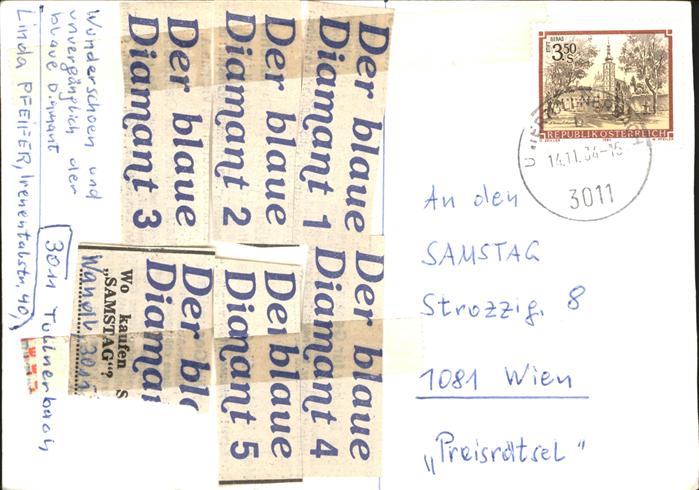 Wunderschoen und
unvergänglich der
blaue Diamant
Linda PFEIFER, Irenentalstr. 40,
3011 Tullnerbach
Der blaue
Diamant 1
Der blaue
Diamant 2
Der blaue
Diamant 3
Der blaue
Diamant 4
Der blaue
Diamant 5
Der bl
Diaman
Wo kaufen S
„SAMSTAG“?
3.50
S
STIFT
GERAS
REPUBLIK ÖSTERREICH
14.11.84-15
3011
An den
SAMSTAG
Strozzig. 8
1081 Wien
„Preisrätsel“